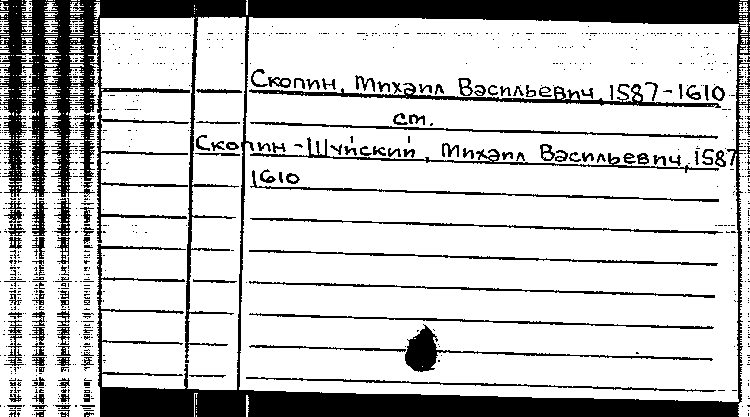 Скопин, Михаил Васильевич, 1587-1610
см.
Скопин-Шуйский, Михаил Васильевич, 1587
1610